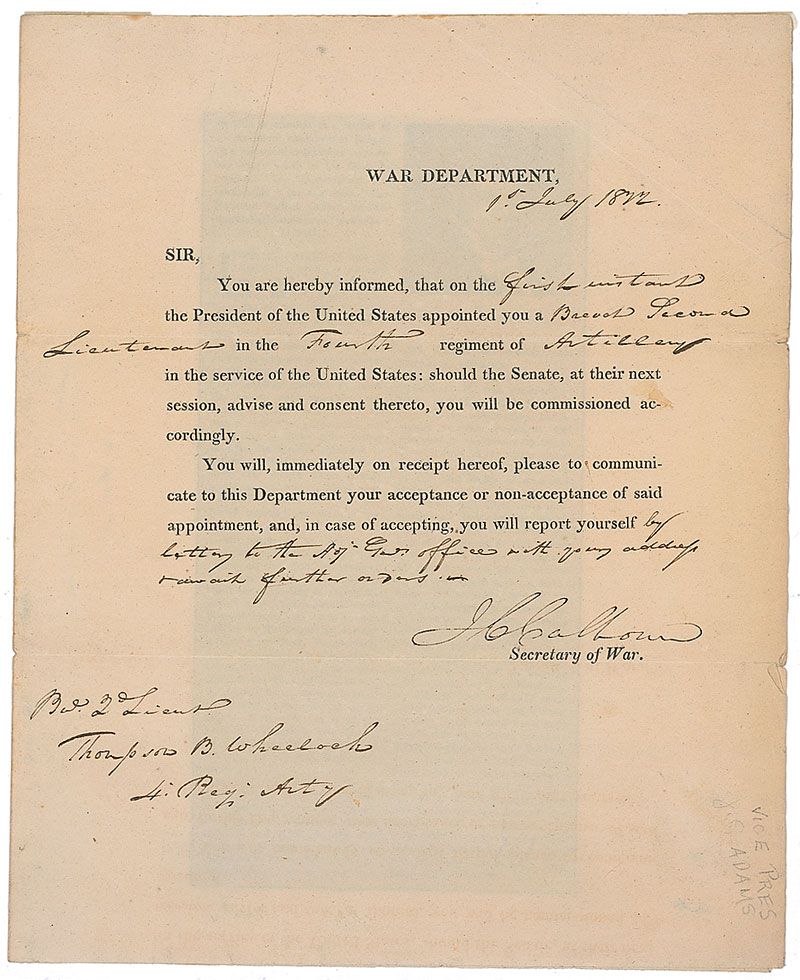 WAR DEPARTMENT,
1st July 1822.
SIR,
You are hereby informed, that on the first instant
the President of the United States appointed you a Brevet Second
Lieutenant in the Fourth regiment of Artillery
in the service of the United States: should the Senate, at their next
session, advise and consent thereto, you will be commissioned ac-
cordingly.
You will, immediately on receipt hereof, please to communi-
cate to this Department your acceptance or non-acceptance of said
appointment, and, in case of accepting, you will report yourself by
letter to the Adj. Genl's office with your address
& await further orders.
J C Calhoun
Secretary of War.
Bvt. 2d Lieut
Thompson B. Wheelock
4. Regt. Arty
VICE PRES
J. Q. ADAMS